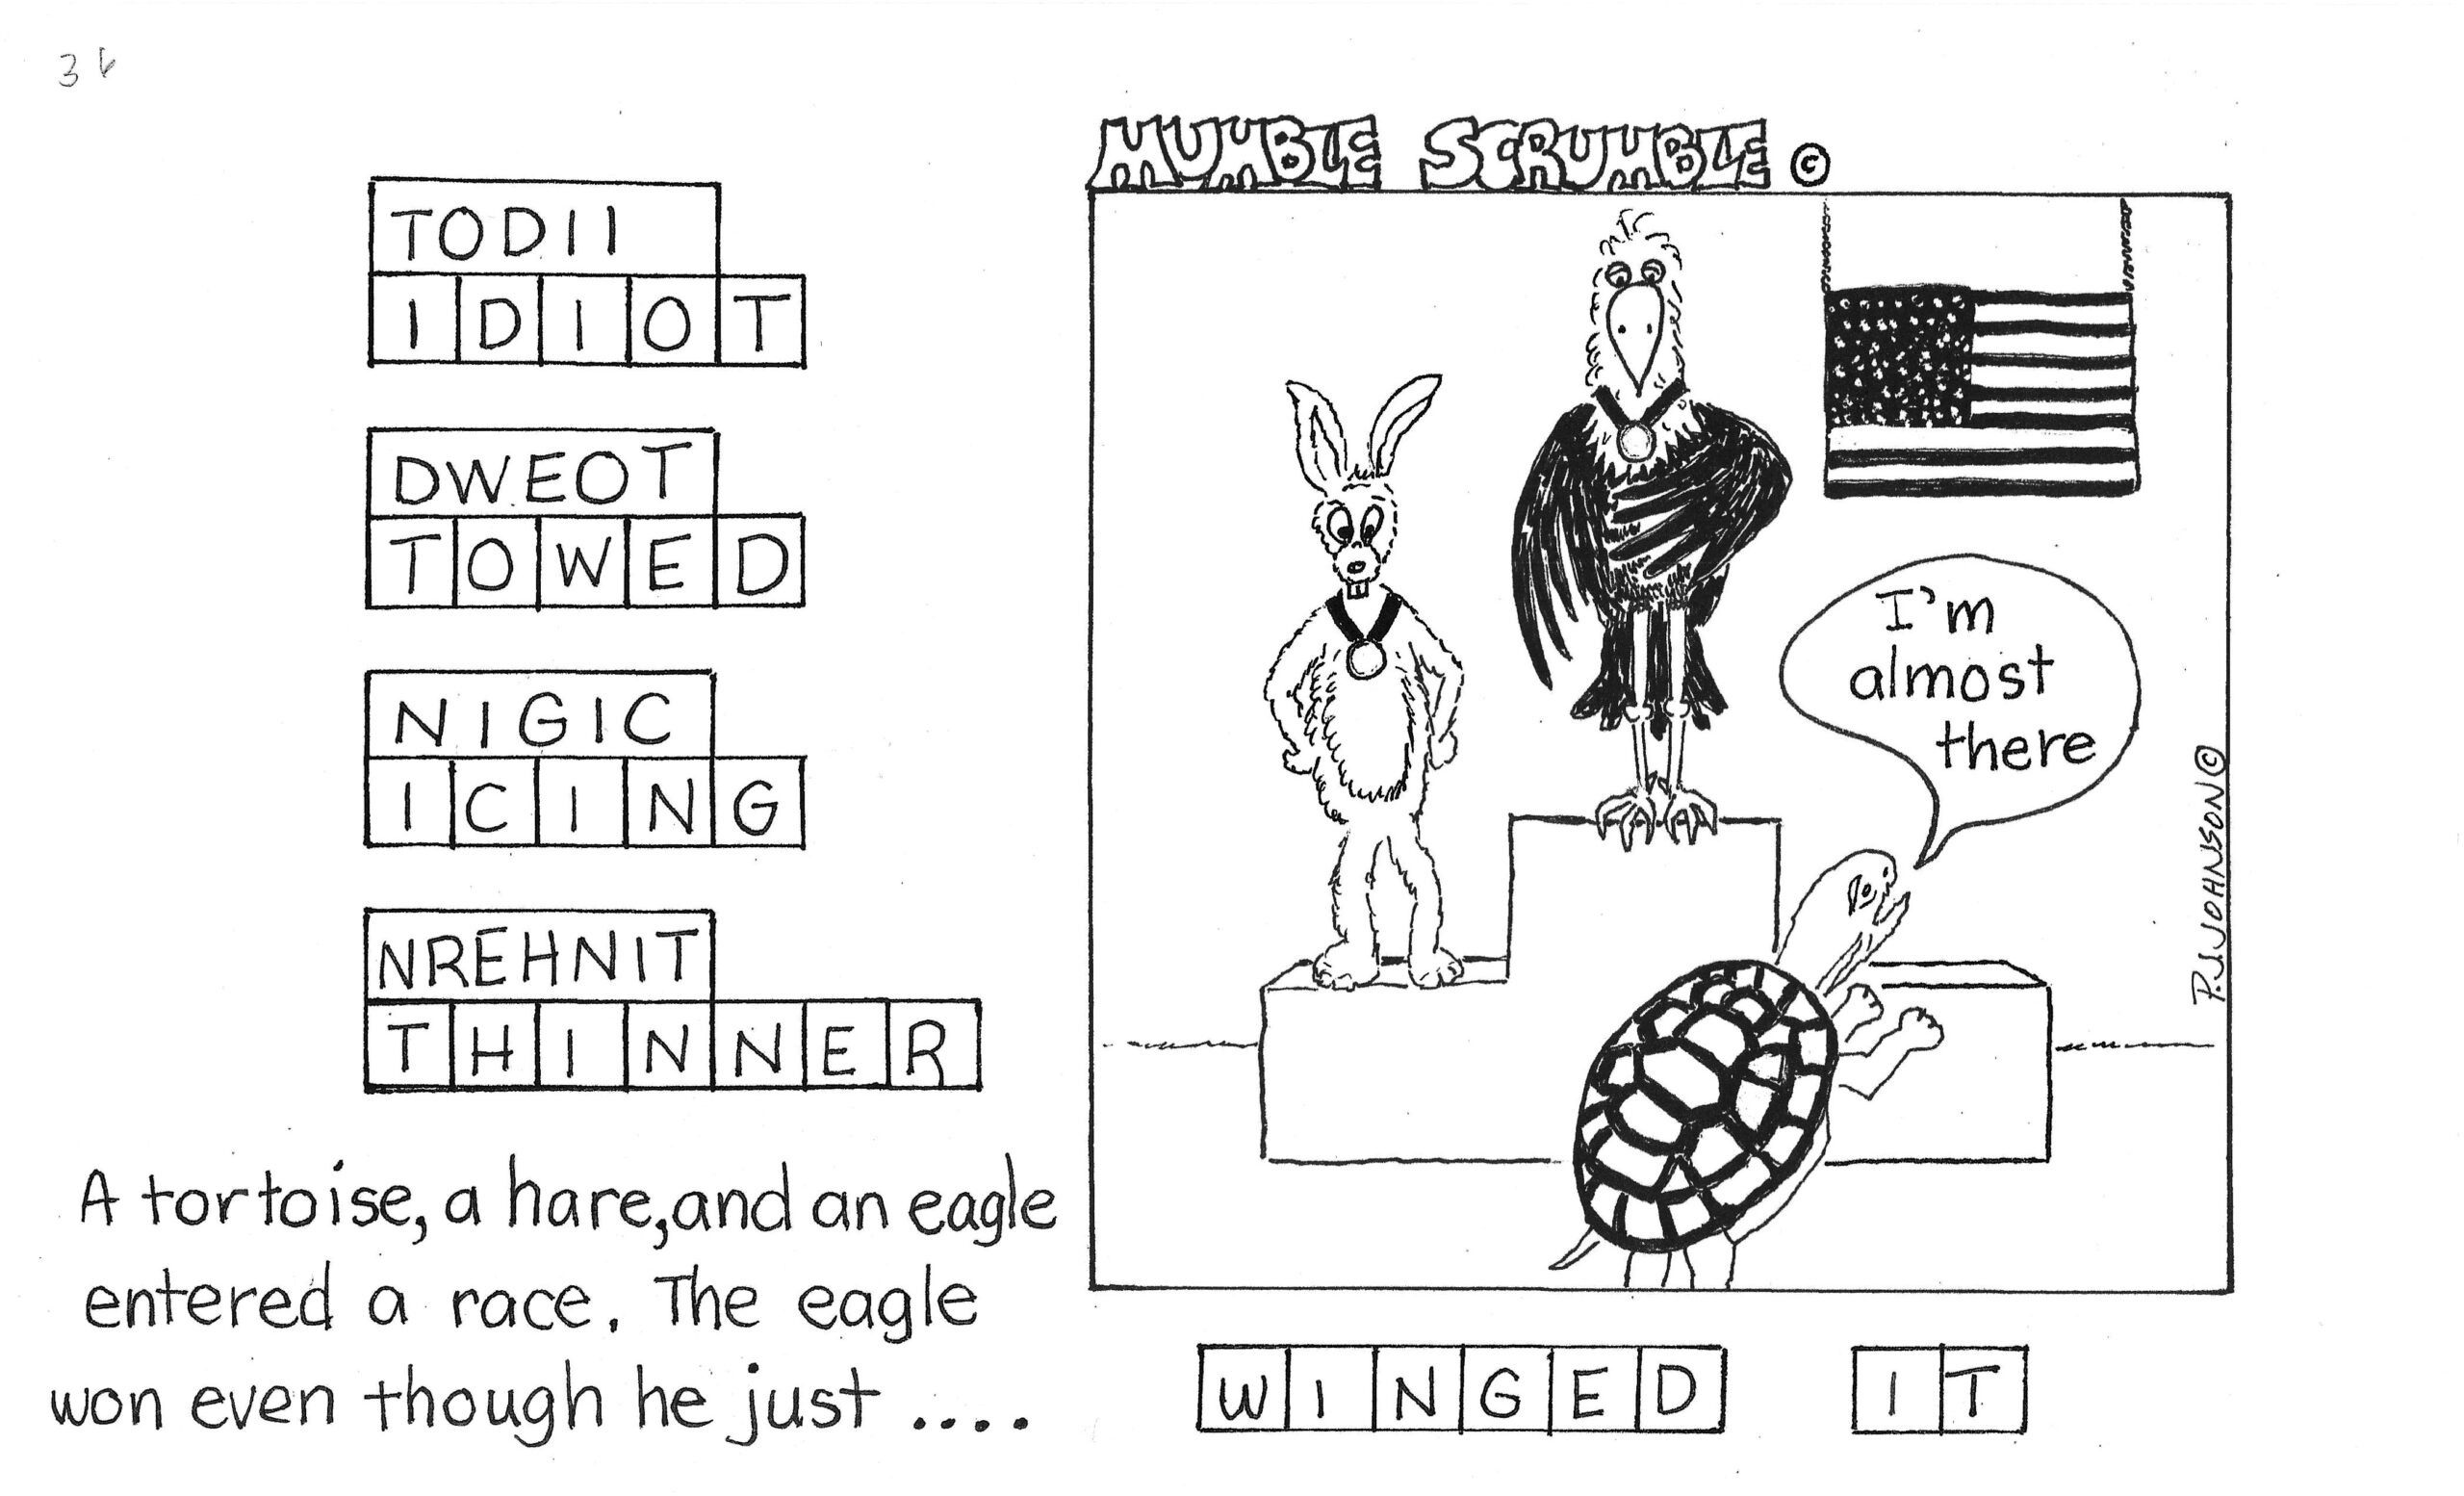 36
MUMBLE SCRUMBLE ©
TODII
IDIOT
DWEOT
TOWED
NIGIC
ICING
NREHNIT
THINNER
A tortoise, a hare, and an eagle
entered a race. The eagle
won even though he just ....
I'm
almost
there
P.J. JOHNSON ©
WINGED IT